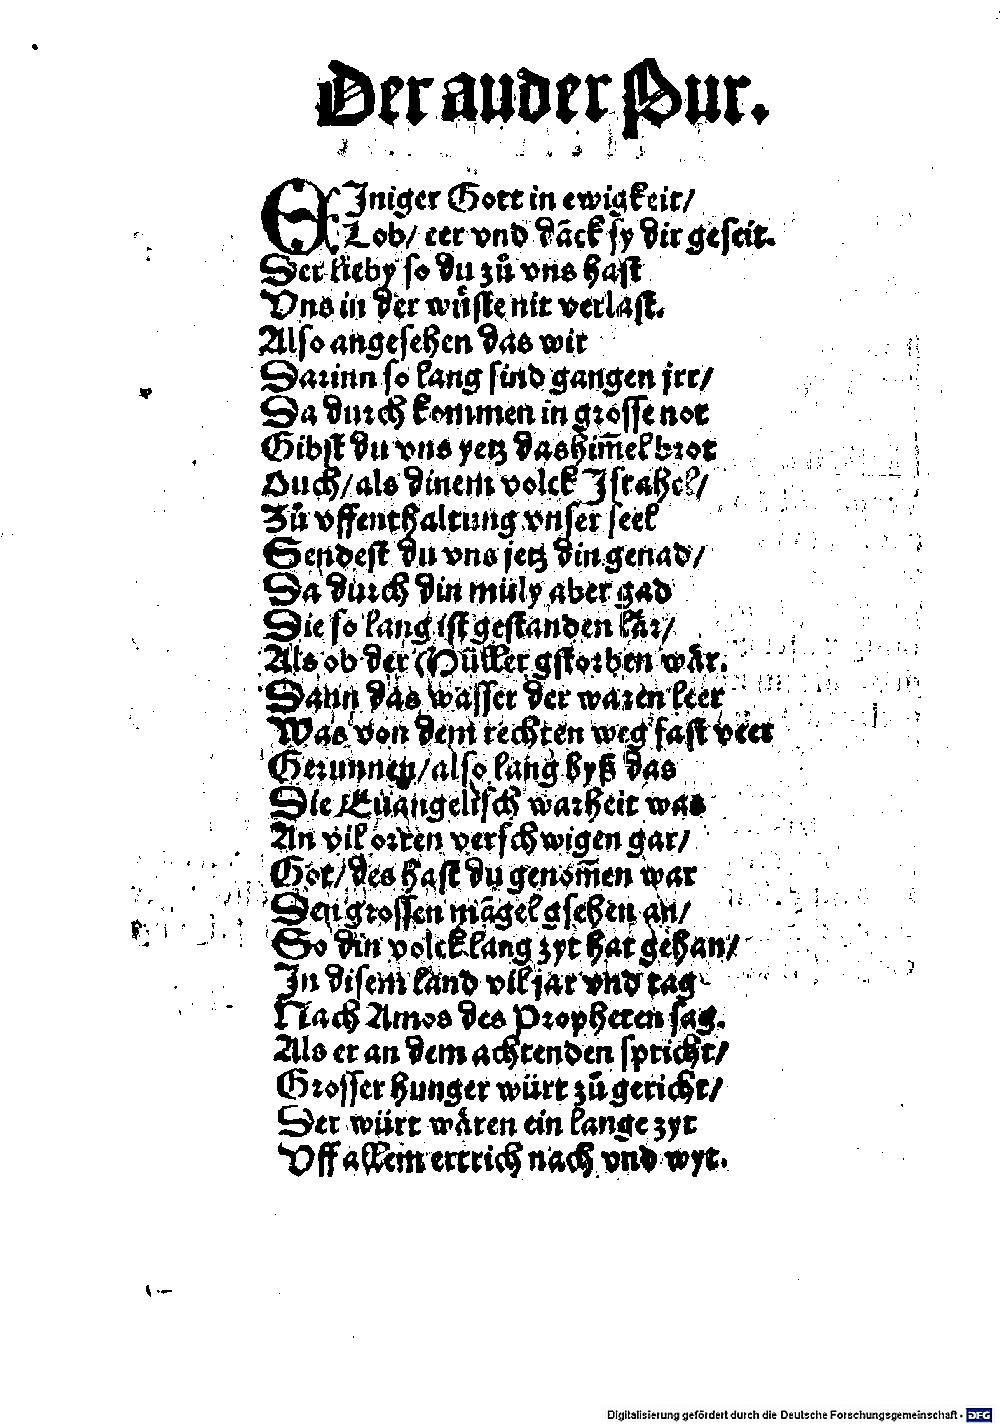 Der ander Pur.
EIniger Gott in ewigkeit/
Lob/ eer vnd dāck sy dir geseit.
Der lieby so du zů vns hast
Vns in der wůste nit verlast.
Also angesehen das wir
Darinn so lang sind gangen jrr/
Da durch kommen in grosse not
Gibst du vns yetz das him̄elbrot
Ouch/ als dinem volck Jsrahel/
Zů vffenthaltung vnser seel
Sendest du vns jetz din genad/
Da durch din müly aber gad
Die so lang ist gestanden lår/
Als ob der Müller gstorben wår.
Dann das wasser der waren leer
Was von dem rechten weg fast veer
Gerunnen/ also lang byß das
Die Euangelisch warheit was
An vil orten verschwigen gar/
Got/ des hast du genom̄en war
Den grossen māgel gsehen an/
So din volck lang zyt hat gehan/
In disem land vil jar vnd tag
Nach Amos des Propheten sag.
Als er an dem achtenden spricht/
Grosser hunger würt zů gericht/
Der würt wåren ein lange zyt
Vff allem ertrich nach vnd wyt.
Digitalisierung gefördert durch die Deutsche Forschungsgemeinschaft - DFG